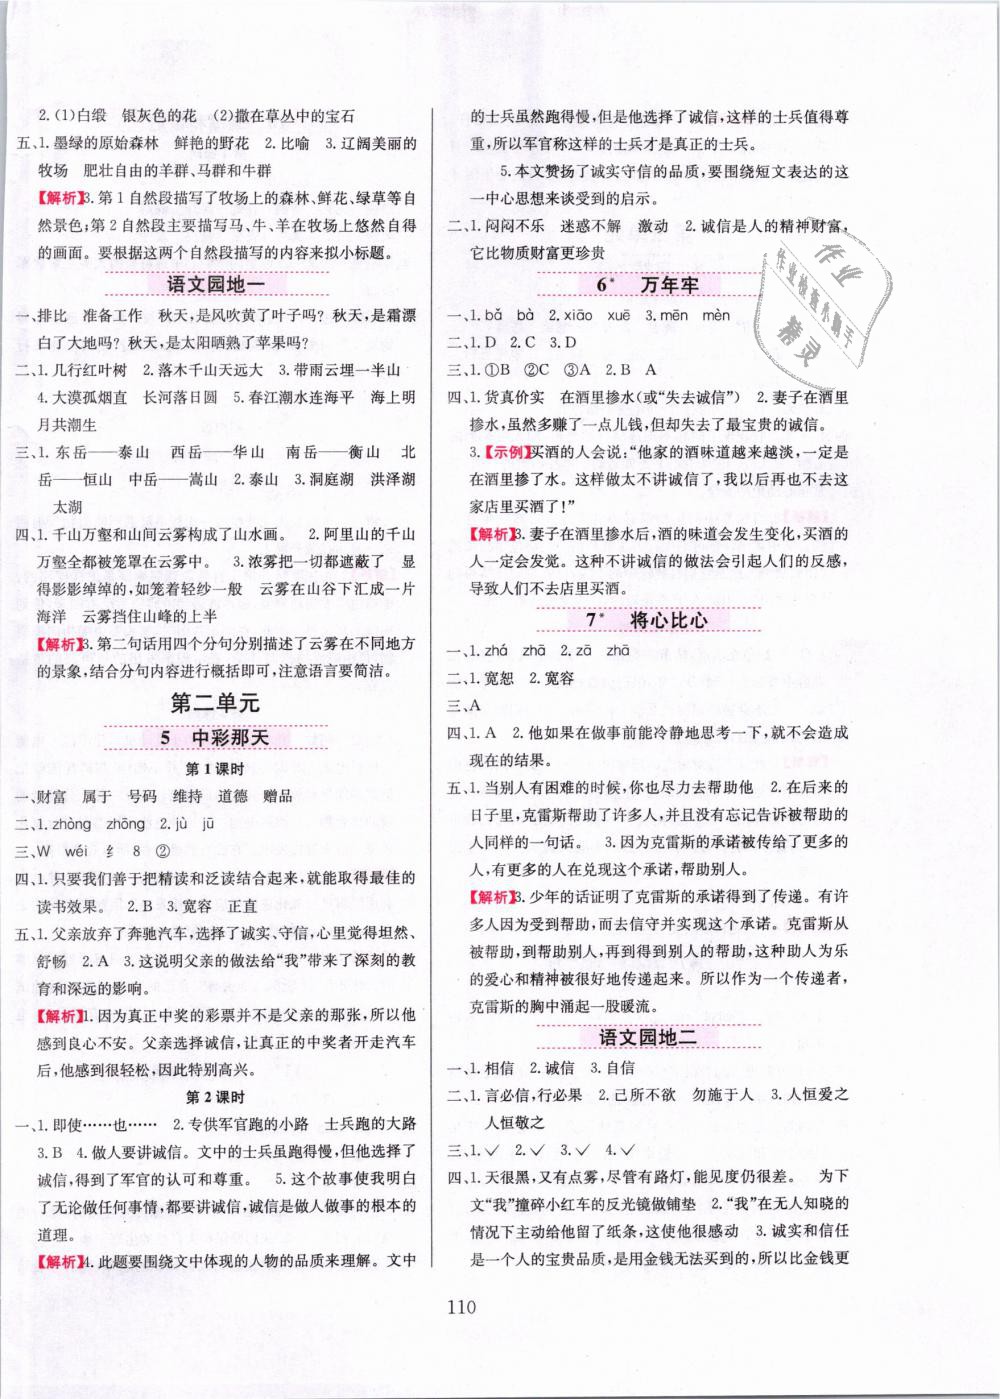 2. (1)白缎　银灰色的花　(2)撒在草丛中的宝石
五、1. 墨绿的原始森林　鲜艳的野花　2. 比喻　3. 辽阔美丽的
牧场　肥壮自由的羊群、马群和牛群
【解析】3. 第1自然段描写了牧场上的森林、鲜花、绿草等自
然景色；第2自然段主要描写马、牛、羊在牧场上悠然自得
的画面。要根据这两个自然段描写的内容来拟小标题。
语文园地一
一、排比　准备工作　秋天，是风吹黄了叶子吗？秋天，是霜漂
白了大地吗？秋天，是太阳晒熟了苹果吗？
二、1. 几行红叶树　2. 落木千山天远大　3. 带雨云埋一半山
4. 大漠孤烟直　长河落日圆　5. 春江潮水连海平　海上明
月共潮生
三、1. 东岳——泰山　西岳——华山　南岳——衡山　北
岳——恒山　中岳——嵩山　2. 泰山　3. 洞庭湖　洪泽湖
太湖
四、1. 千山万壑和山间云雾构成了山水画。　2. 阿里山的千山
万壑全都被笼罩在云雾中。　3. 浓雾把一切都遮蔽了　显
得影影绰绰的，如笼着轻纱一般　云雾在山谷下汇成一片
海洋　云雾挡住山峰的上半
【解析】3. 第二句话用四个分句分别描述了云雾在不同地方
的景象，结合分句内容进行概括即可，注意语言要简洁。
第二单元
5　中彩那天
第1课时
一、财富　属于　号码　维持　道德　赠品
二、1. zhòng　zhōng　2. jù　jū
三、W　wéi　纟　8　②
四、1. 只要我们善于把精读和泛读结合起来，就能取得最佳的
读书效果。　2. B　3. 宽容　正直
五、1. 父亲放弃了奔驰汽车，选择了诚实、守信，心里觉得坦然、
舒畅　2. A　3. 这说明父亲的做法给“我”带来了深刻的教
育和深远的影响。
【解析】1. 因为真正中奖的彩票并不是父亲的那张，所以他
感到良心不安。父亲选择诚信，让真正的中奖者开走汽车
后，他感到很轻松，因此特别高兴。
第2课时
一、1. 即使……也……　2. 专供军官跑的小路　士兵跑的大路
3. B　4. 做人要讲诚信。文中的士兵虽跑得慢，但他选择了
诚信，得到了军官的认可和尊重。　5. 这个故事使我明白
了无论做任何事情，都要讲诚信，诚信是做人做事的根本的
道理。
【解析】4. 此题要围绕文中体现的人物的品质来理解。文中
的士兵虽然跑得慢，但是他选择了诚信，这样的士兵得到了
尊重，所以军官称这样的士兵才是真正的士兵。
5. 本文赞扬了诚实守信的品质，要围绕短文表达的这
一中心思想来谈受到的启示。
二、1. 闷闷不乐　迷惑不解　激动　2. 诚信是人的精神财富，
它比物质财富更珍贵
6*　万年牢
一、1. bǎ　bà　2. xiāo　xuē　3. mēn　mèn
二、1. D　2. C　3. D
三、1. ①B　②C　③A　2. B　A
四、1. 货真价实　在酒里掺水(或“失去诚信”)　2. 妻子在酒里
掺水，虽然多赚了一点儿钱，但却失去了最宝贵的诚信。
3. 【示例】买酒的人会说：“他家的酒味道越来越淡，一定是
在酒里掺了水。这样做太不讲诚信了，我以后再也不去这
家店里买酒了！”
【解析】3. 妻子在酒里掺水后，酒的味道会发生变化，买酒的
人一定会发觉。这种不讲诚信的做法会引起人们的反感，
导致人们不去店里买酒。
7*　将心比心
一、1. zhá　zhā　2. zā　zhā
二、1. 宽恕　2. 宽容
三、A
四、1. A　2. 他如果在做事前能冷静地思考一下，就不会造成
现在的结果。
五、1. 当别人有困难的时候，你也尽力去帮助他　2. 在后来的
日子里，克雷斯帮助了许多人，并且没有忘记告诉被帮助的
人同样的一句话。　3. 因为克雷斯的承诺被传给了更多的
人，有更多的人在兑现这个承诺，帮助别人。
【解析】3. 少年的话证明了克雷斯的承诺得到了传递。有许
多人因为受到帮助，而去信守并实现这个承诺。克雷斯从
被帮助，到帮助别人，再到得到别人的帮助，这种助人为乐
的爱心和精神被很好地传递起来。所以作为一个传递者，
克雷斯的胸中涌起一股暖流。
语文园地二
一、1. 相信　2. 诚信　3. 自信
二、1. 言必信，行必果　2. 己所不欲　勿施于人　3. 人恒爱之
人恒敬之
三、1. ✓　2. ✓　3. ✓　4. ✓
四、1. 天很黑，又有点雾，尽管有路灯，能见度仍很差。　为下
文“我”撞碎小红车的反光镜做铺垫　2. “我”在无人知晓的
情况下主动给他留了纸条，这使他很感动　3. 诚实和信任
是一个人的宝贵品质，是用金钱无法买到的，所以比金钱更
110
作业
作业检查小助手
精灵